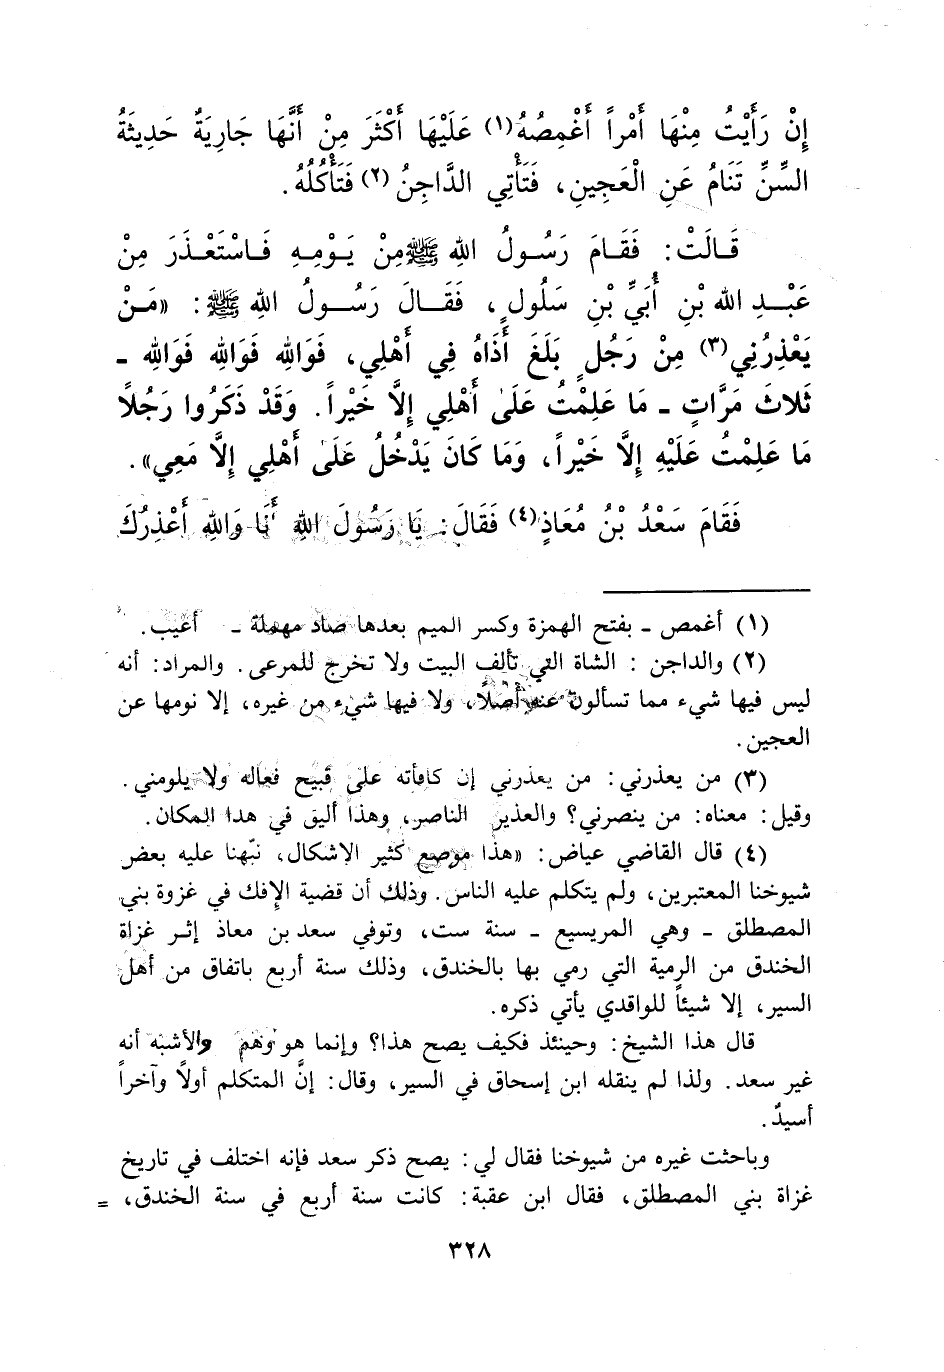 إِنْ رَأَيْتُ مِنْهَا أَمْراً أَغْمِصُهُ(١) عَلَيْهَا أَكْثَرَ مِنْ أَنَّهَا جَارِيَةٌ حَدِيثَةُ
السِّنِّ تَنَامُ عَنِ الْعَجِينِ، فَتَأْتِي الدَّاجِنُ(٢) فَتَأْكُلُهُ.
قَالَتْ: فَقَامَ رَسُولُ اللهِ ﷺ مِنْ يَوْمِهِ فَاسْتَعْذَرَ مِنْ
عَبْدِ اللهِ بْنِ أُبَيِّ بْنِ سَلُولٍ، فَقَالَ رَسُولُ اللهِ ﷺ: «مَنْ
يَعْذِرُنِي(٣) مِنْ رَجُلٍ بَلَغَ أَذَاهُ فِي أَهْلِي، فَوَاللهِ فَوَاللهِ فَوَاللهِ ـ
ثَلَاثَ مَرَّاتٍ ـ مَا عَلِمْتُ عَلَىٰ أَهْلِي إِلَّا خَيْراً. وَقَدْ ذَكَرُوا رَجُلًا
مَا عَلِمْتُ عَلَيْهِ إِلَّا خَيْراً، وَمَا كَانَ يَدْخُلُ عَلَىٰ أَهْلِي إِلَّا مَعِي».
فَقَامَ سَعْدُ بْنُ مُعَاذٍ(٤) فَقَالَ: يَا رَسُولَ اللهِ أَنَا وَاللهِ أَعْذِرُكَ
(١) أغمص ـ بفتح الهمزة وكسر الميم بعدها صاد مهملة ـ أعيب.
(٢) والداجن: الشاة التي تألف البيت ولا تخرج للمرعى. والمراد: أنه
ليس فيها شيء مما تسألون عنه أصلًا، ولا فيها شيء من غيره، إلا نومها عن
العجين.
(٣) من يعذرني: من يعذرني إن كافأته على قبيح فعاله ولا يلومني.
وقيل: معناه: من ينصرني؟ والعذير الناصر، وهذا أليق في هذا المكان.
(٤) قال القاضي عياض: «هذا موضع كثير الاشكال، نبّهنا عليه بعض
شيوخنا المعتبرين، ولم يتكلم عليه الناس. وذلك أن قضية الإفك في غزوة بني
المصطلق ـ وهي المريسيع ـ سنة ست، وتوفي سعد بن معاذ إثر غزاة
الخندق من الرمية التي رمي بها بالخندق، وذلك سنة أربع باتفاق من أهل
السير، إلا شيئاً للواقدي يأتي ذكره.
قال هذا الشيخ: وحينئذ فكيف يصح هذا؟ وإنما هو وَهَم والأشبه أنه
غير سعد. ولذا لم ينقله ابن إسحاق في السير، وقال: إنَّ المتكلم أولاً وآخراً
أسيدٌ.
وباحثت غيره من شيوخنا فقال لي: يصح ذكر سعد فإنه اختلف في تاريخ
غزاة بني المصطلق، فقال ابن عقبة: كانت سنة أربع في سنة الخندق، =
٣٢٨